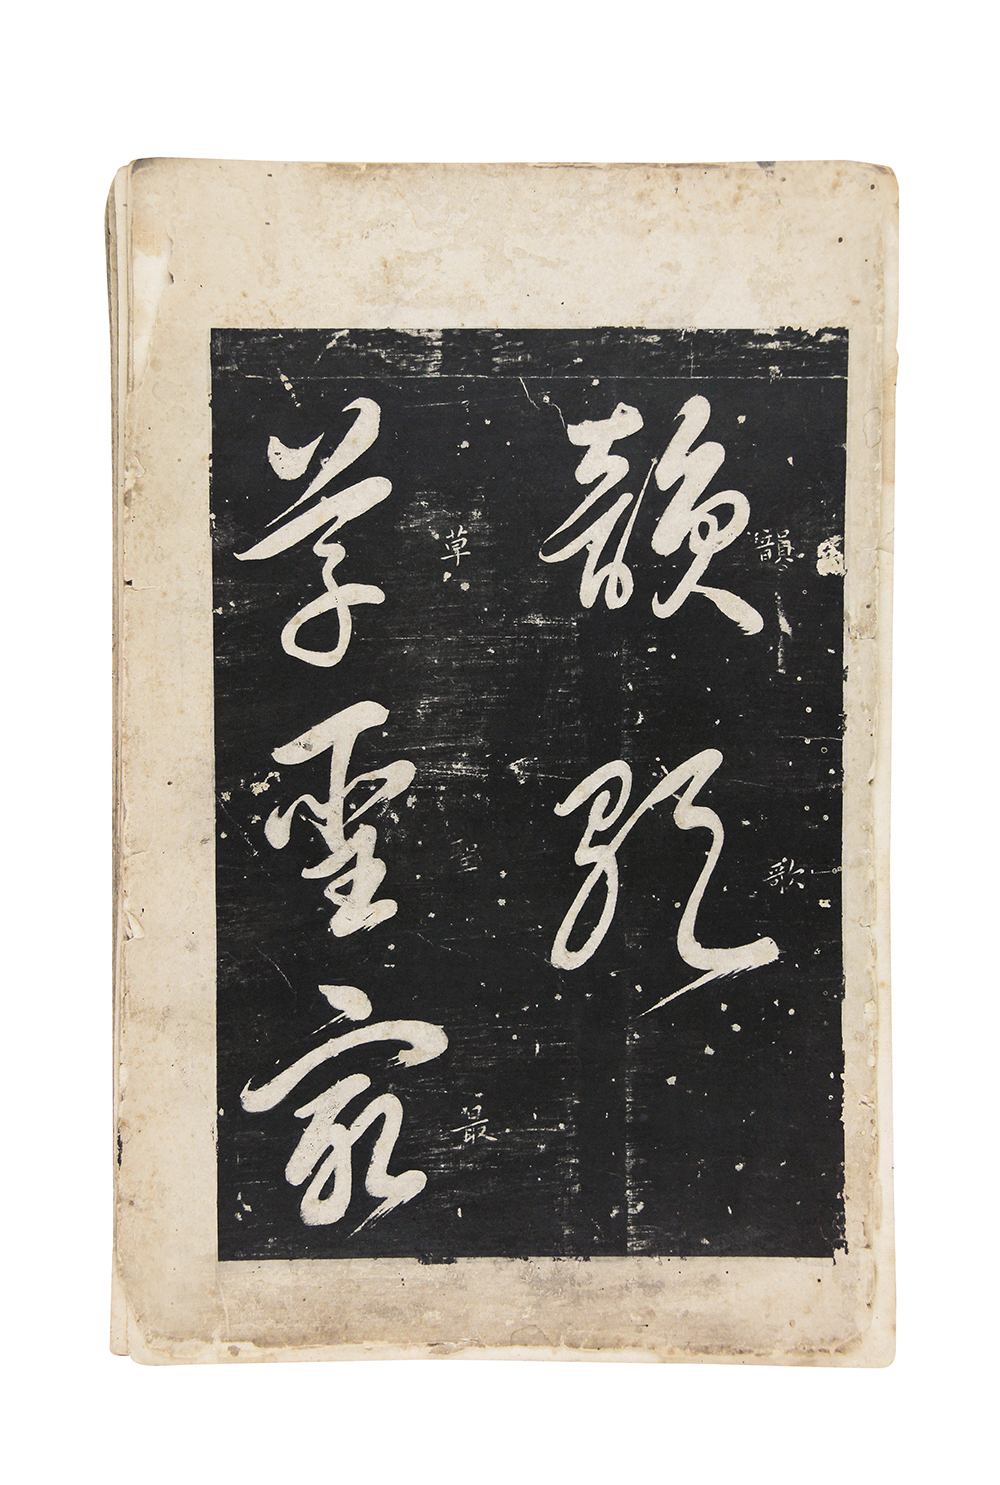 韻歌
韻歌
草聖最
草聖最